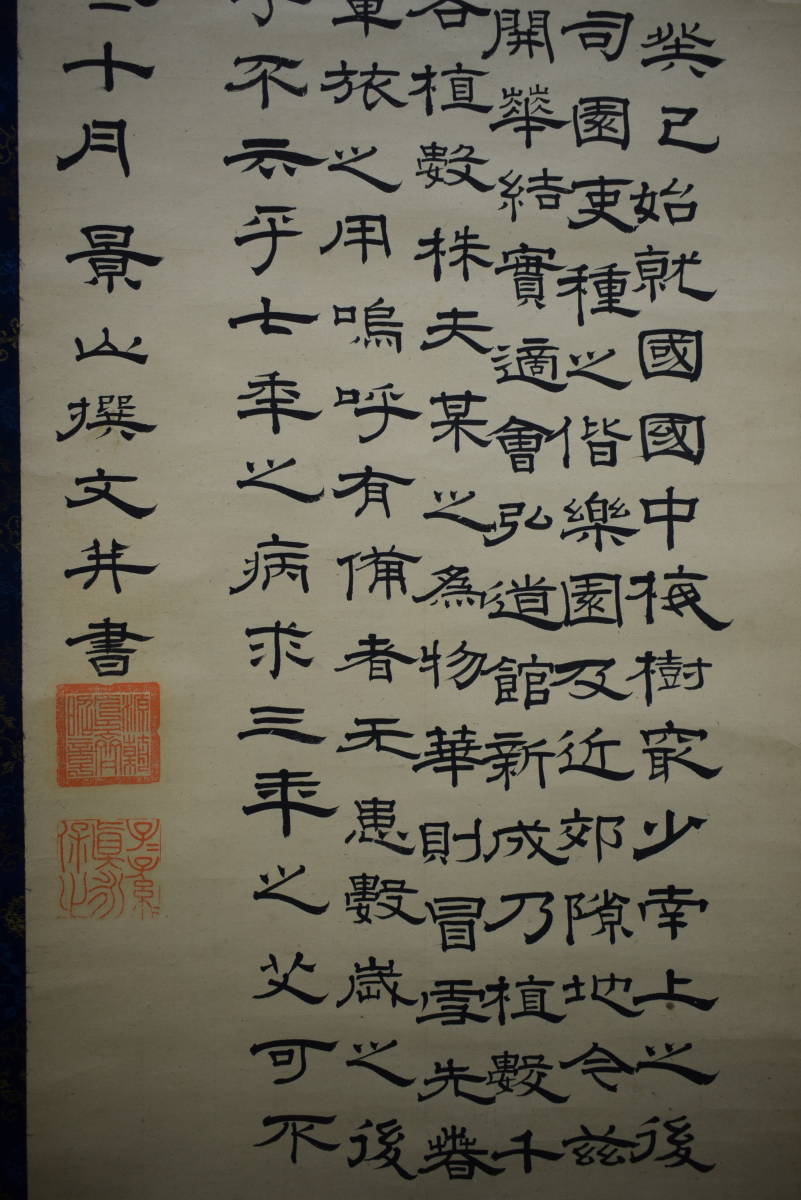 癸巳始就國國中梅樹冣少南上之後
司園吏種之偕樂園及近郊隙地今茲
開華結實適會弘道館新成乃植數千
各植數株夫某之為物華則冒雪先萅
軍旅之用嗚呼有備者无患數歲之後
子不云乎七年之病求三年之艾可不
十月 景山撰文并書